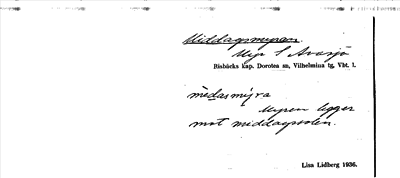 Middagsmyran.
Myr S Avasjö
Risbäcks kap. Dorotea sn, Vilhelmina tg, Vbt. l.
mèdasmy̨ra
Myren ligger
mot middagssolen.
Lisa Lidberg 1936.